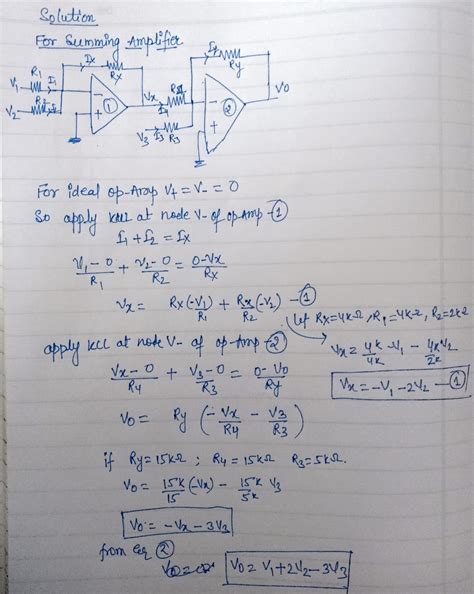 Solution
For Summing Amplifier
V1 R1 I1 Ix Rx
V2 R2
1
Vx R4 I4
V3 I3 R3
Iy Ry
2
V0
For ideal op-Amp V+ = V- = 0
So apply KCL at node V- of op-Amp - 1
I1 + I2 = Ix
V1-0/R1 + V2-0/R2 = 0-Vx/Rx
Vx = Rx(-V1)/R1 + Rx/R2(-V2) - 1
let Rx=4kΩ, R1=4kΩ, R2=2kΩ
Vx = 4k/4k - V1 - 4k V2/2k
Vx = -V1 - 2V2 - 1
apply KCL at node V- of op-Amp - 2
Vx-0/R4 + V3-0/R3 = 0-V0/Ry
V0 = Ry (-Vx/R4 - V3/R3)
if Ry = 15kΩ ; R4 = 15kΩ R3 = 5kΩ.
V0 = 15k/15 (-Vx) - 15k/5k V3
V0 = -Vx - 3V3
from Eq 2
V0 = V1 + 2V2 - 3V3